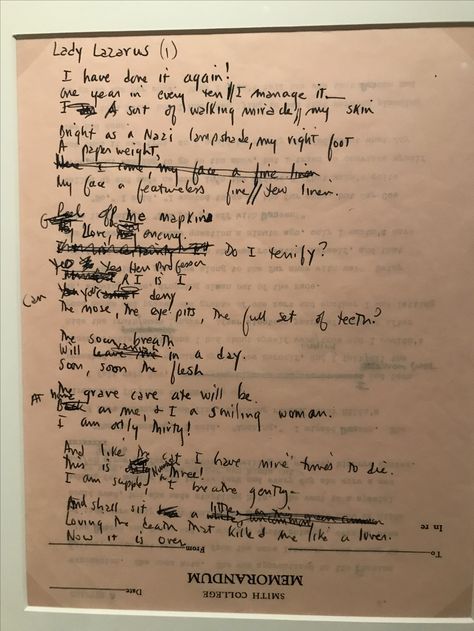 Lady Lazarus (1)
I have done it again!
One year in every ten // I manage it—
I A sort of walking miracle // my skin
Bright as a Nazi lampshade, my right foot
A paperweight,
Here I come, my face a fine linen
My face a featureless fine // Jew linen.
Peel off the napkin
My love, my enemy.
Do I terrify?
Yes Yes Herr Professor
It is I,
Can you deny
The nose, the eye pits, the full set of teeth?
The sour breath
Will vanish in a day.
Soon, soon the flesh
The grave cave ate will be
At home on me, & I a smiling woman.
I am only thirty!
And like the cat I have nine times to die.
This is Number Three!
I am supple, I breathe gently—
And shall sit a little
Loving the death that killed me like a lover.
Now it is over
In re
To
From
MEMORANDUM
SMITH COLLEGE
Date